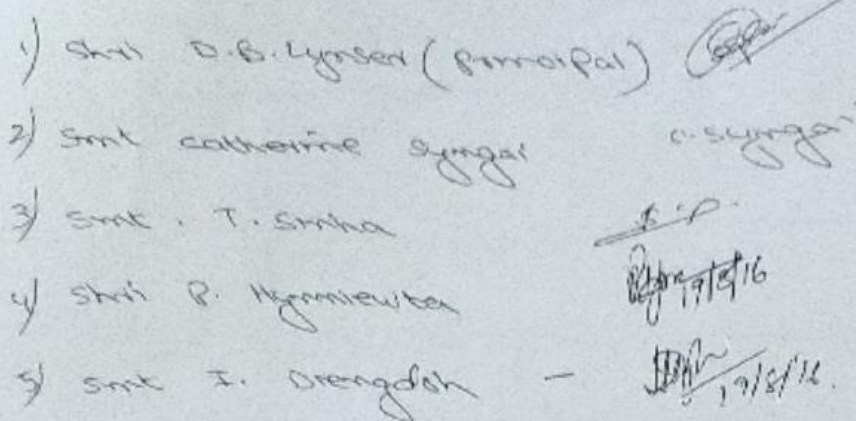 1) Shri D.B. Lynser (Principal)
2) Smt Catherine Syngai C. Syngai
3) Smt. T. Sinha
4) Shri P. Hynniewta 19/8/16
5) Smt I. Diengdoh - 19/8/16